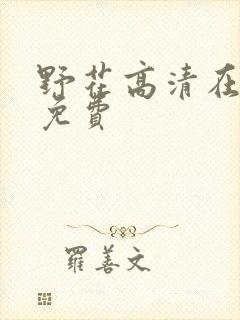 野花高清在
免費
羅善文